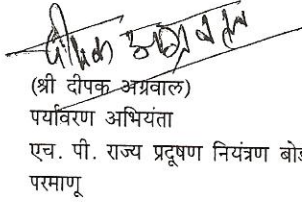 दीपक अग्रवाल
(श्री दीपक अग्रवाल)
पर्यावरण अभियंता
एच. पी. राज्य प्रदूषण नियंत्रण बोर्ड
परमाणू